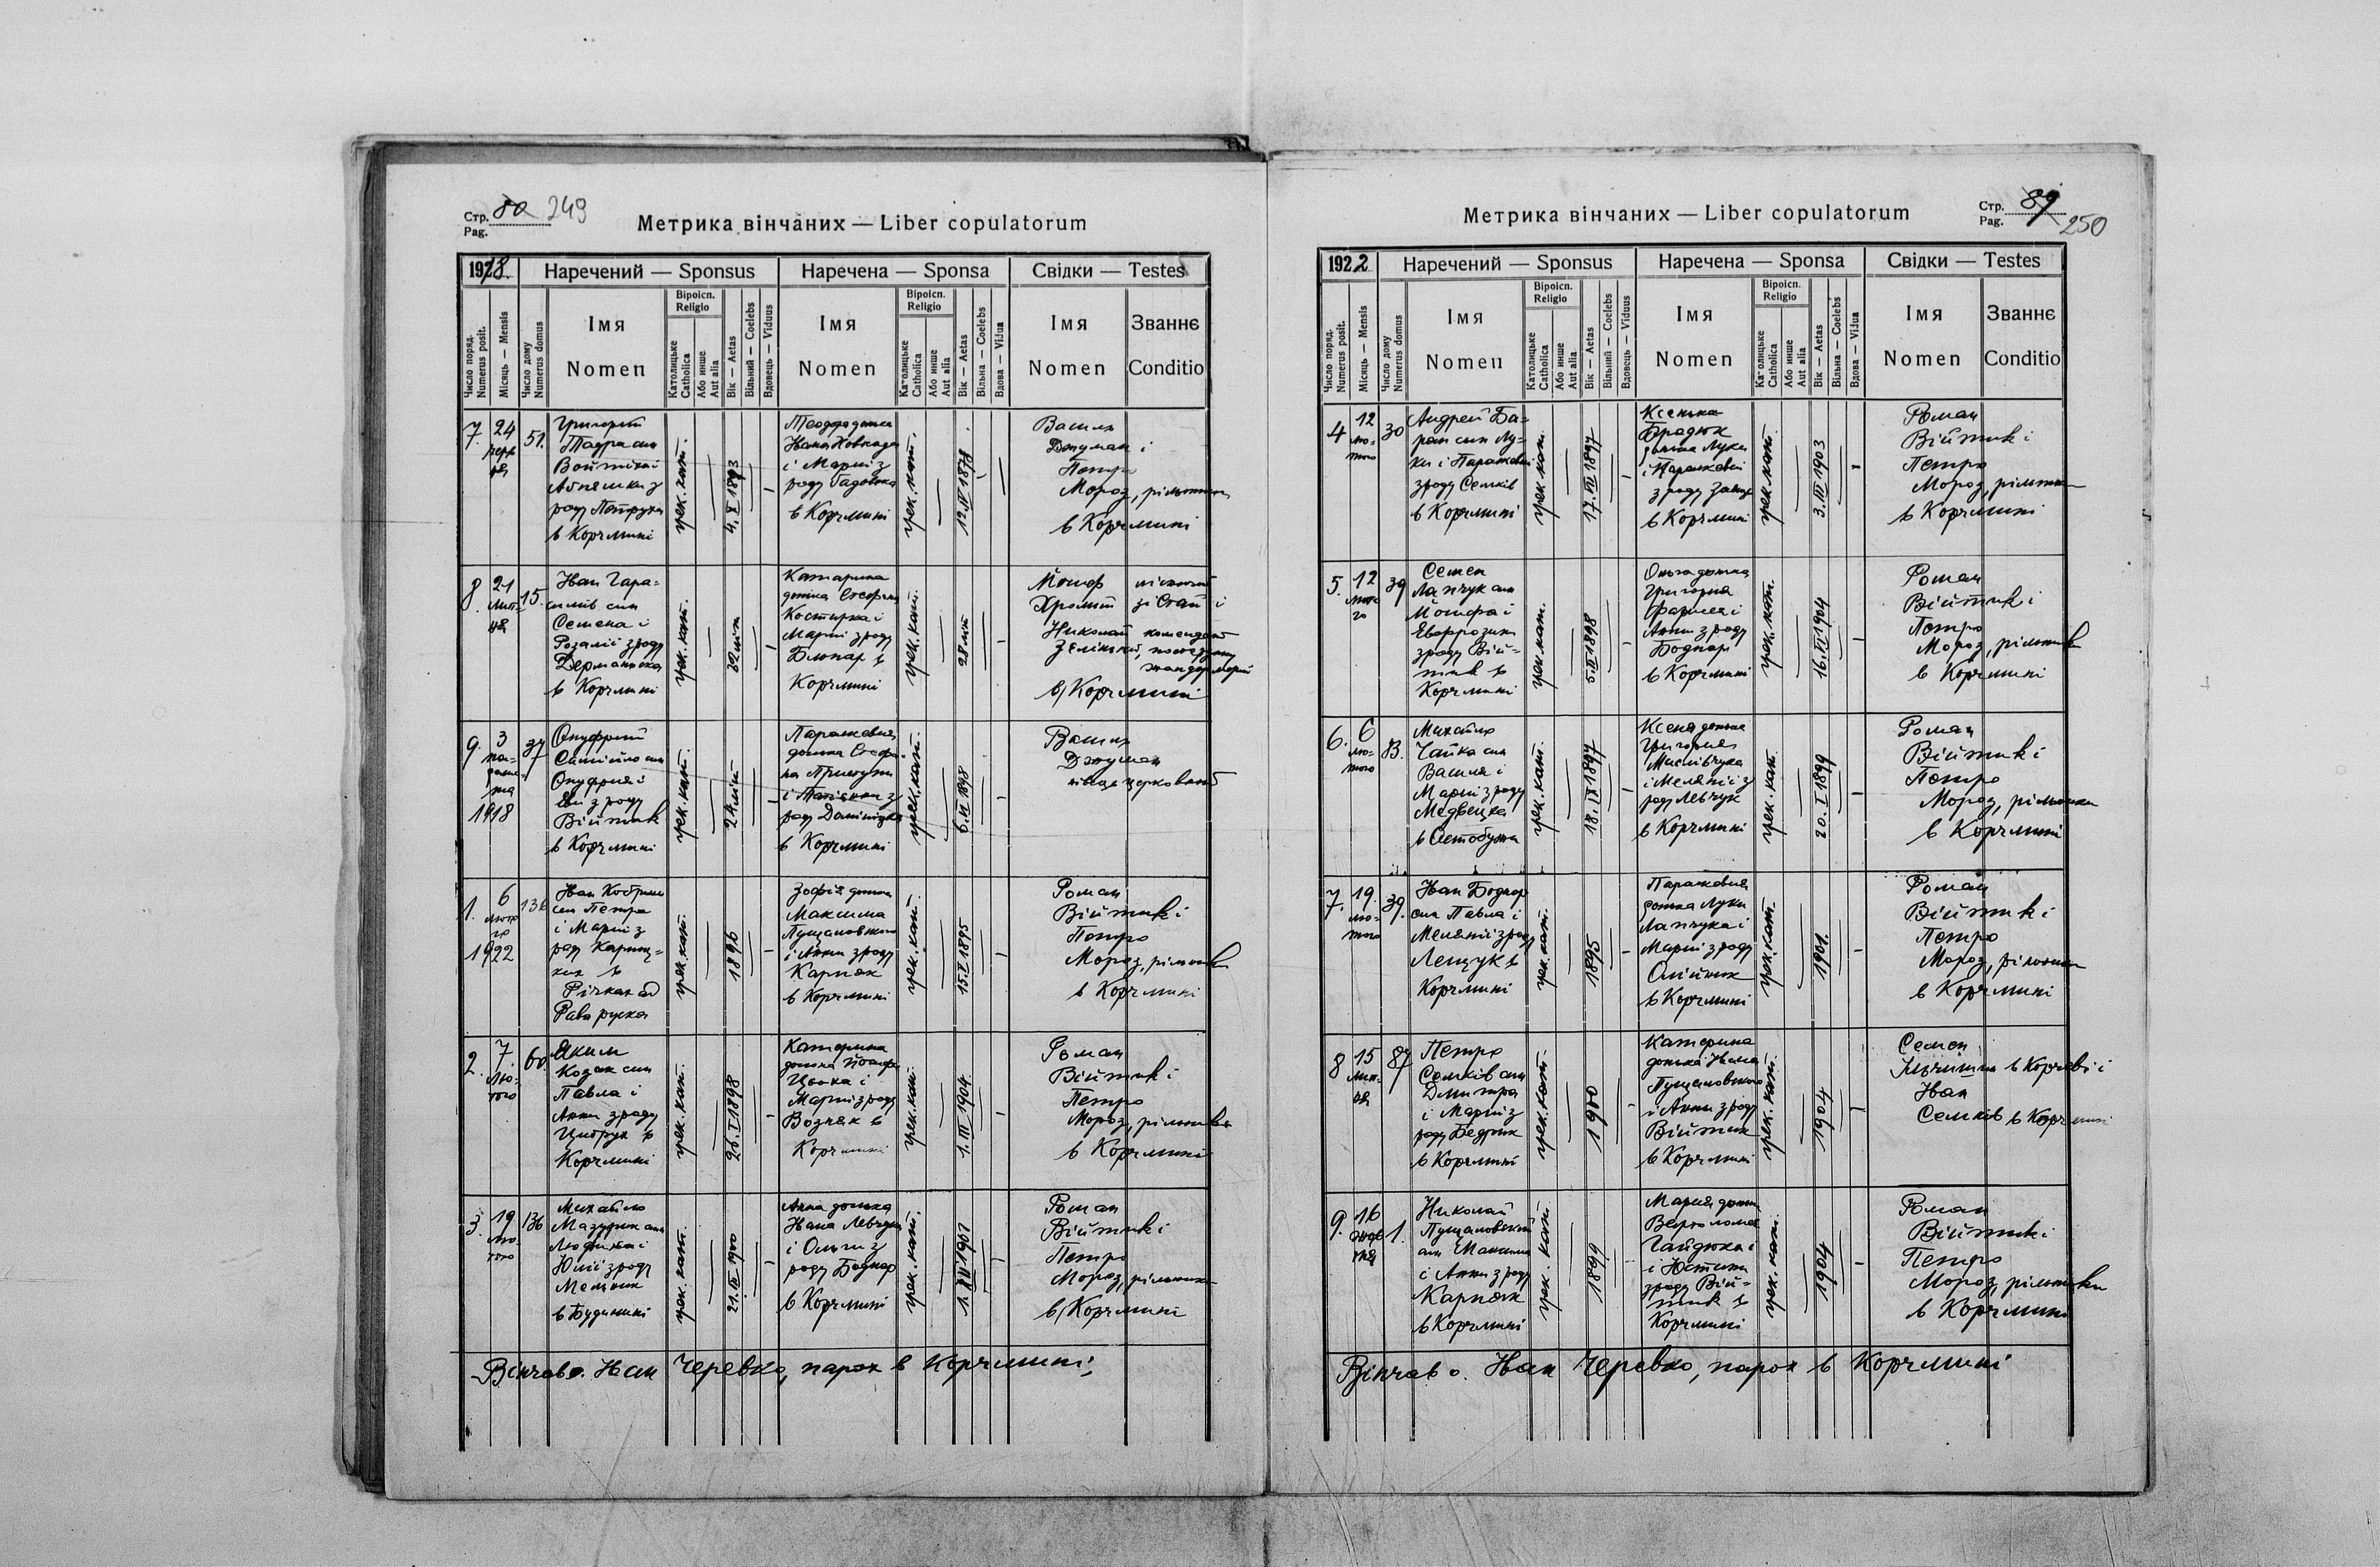 Стр. 80 249
Pag.
Метрика вінчаних — Liber copulatorum
1918. Наречений — Sponsus Наречена — Sponsa Свідки — Testes
Число поряд. Numerus posit.
Місяць — Mensis
Число дому Numerus domus
Імя Nomen
Віроісп. Religio
Католицьке Catholica
Або инше Aut alia
Вік — Aetas
Вільний — Coelebs
Вдовець — Viduus
Імя Nomen
Віроісп. Religio
Католицьке Catholica
Або инше Aut alia
Вік — Aetas
Вільна — Coelebs
Вдова — Vidua
Імя Nomen
Званнє Conditio
7. 24 черв ця 51.
Григорий
син
Войтіха і
з
роду Петруха
в Корчмині
грек. кат.
4. X 1893
Теодора донька
Івана
і Мариї з
роду
в Корчмині
грек. кат.
12. IV 1878
Василь
Джуман і
Петро
Мороз, рільники
в Корчмині
8. 21 лип- ця 15.
Іван Гара-
симів син
Семена і
Розалії з роду
в Корчмині
грек. кат.
32 літ
Катарина
донька Стефана
Костирка і
Мариї з роду
в
Корчмині
грек. кат.
28 літ
Йосиф
і
Николай комендант
жандармерії
в Корчмині
9. 3 ли- стопа- да 1918 37
Онуфрий
Самійло син
Онуфрия і
Еви з роду
Війтик
в Корчмині
грек. кат.
24 літ
Параскевия
донька Стефа-
на
і з
роду
в Корчмині
грек. кат.
6. VI 1898
Василь
Джуман
півець церковний
1. 6 люто го 1922 136
Іван
син Петра
і Мариї з
роду
в
Річках
Рава руска
грек. кат.
1896
Зофія донька
Максима
Пущаловского
і Анни з роду
Карпюк
в Корчмині
грек. кат.
15. V 1895
Роман
Війтик і
Петро
Мороз, рільники
в Корчмині
2. 7. лю- того 60.
Яким
Козак син
Павла і
Анни з роду
в
Корчмині
грек. кат.
26. I 1898
Катерина
донька Йосифа
і
Мариї з роду
Возняк в
Корчмині
грек. кат.
1. III 1904
Роман
Війтик і
Петро
Мороз, рільники
в Корчмині
3. 19 лю- того 136
Михайло
Мазурик син
і
Юлії з роду
Мельник
в Будинині
грек. кат.
21. IX 1900
Анна донька
Івана Левчука
і Ольги з
роду Боднар
в Корчмині
грек. кат.
1. XII 1901
Роман
Війтик і
Петро
Мороз, рільники
в Корчмині
Вінчав о. Іван Черевко, парох в Корчмині;
Метрика вінчаних — Liber copulatorum
Стр. 89
Pag. 250
1922 Наречений — Sponsus Наречена — Sponsa Свідки — Testes
Число поряд. Numerus posit.
Місяць — Mensis
Число дому Numerus domus
Імя Nomen
Віроісп. Religio
Католицьке Catholica
Або инше Aut alia
Вік — Aetas
Вільний — Coelebs
Вдовець — Viduus
Імя Nomen
Віроісп. Religio
Католицьке Catholica
Або инше Aut alia
Вік — Aetas
Вільна — Coelebs
Вдова — Vidua
Імя Nomen
Званнє Conditio
4 12 лю- того 30
Андрей Ба-
ран син Лу-
ки і Параскевії
з роду Семків
в Корчмині
грек. кат.
17. VII 1897
Ксенька
донька Луки
і Параскевії
з роду
в Корчмині
грек. кат.
3. III 1903
Роман
Війтик і
Петро
Мороз, рільники
в Корчмині
5. 12 люто го 39
Семен
Лапчук син
Йосифа і
Евфрозини
з роду Вій-
тик в
Корчмині
грек. кат.
5. II 1898
Ольга донька
Григория
і
Анни з роду
Боднар
в Корчмині
грек. кат.
16. VI 1904
Роман
Війтик і
Петро
Мороз, рільники
в Корчмині
6. 6 лю- того 83.
Михайло
Чайка син
Василя і
Мариї з роду
Медвецка
в
грек. кат.
18. IX 1897
Ксеня донька
Григория
Мислівчука
і Меланії з
роду Левчук
в Корчмині
грек. кат.
20. I 1899
Роман
Війтик і
Петро
Мороз, рільники
в Корчмині
7. 19. лю- того 39.
Іван Боднар
син Павла і
Меланії з роду
Лещук в
Корчмині
грек. кат.
1895
Параскевия
донька Луки
Лапчука і
Мариї з роду
Олійник
в Корчмині
грек. кат.
1901.
Роман
Війтик і
Петро
Мороз, рільники
в Корчмині
8 15 лип- ця 87
Петро
Семків син
Дмитра
і Мариї з
роду
в Корчмині
грек. кат.
1900
Катерина
донька Івана
Пущаловского
і Анни з роду
Війтик
в Корчмині
грек. кат.
1904
Семен
в Корчеві і
Іван
Семків в Корчмині
9. 16 жовт ня 1.
Николай
Пущаловский
син Максима
і Анни з роду
Карпюк
в Корчмині
грек. кат.
1899
Мария донька
Вартоломея
Гайдюка і
і Юстини
з роду Вій-
тик в
Корчмині
грек. кат.
1904
Роман
Війтик і
Петро
Мороз, рільники
в Корчмині
Вінчав о. Іван Черевко, парох в Корчмині